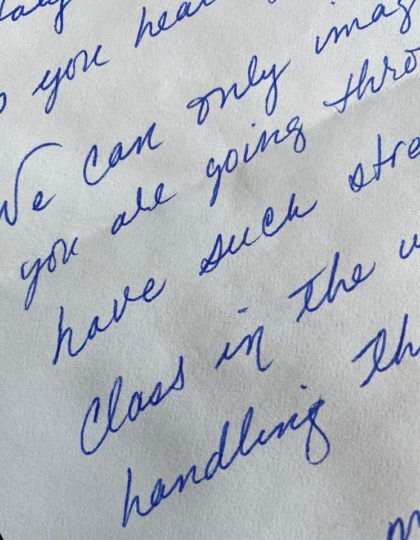 you hear
We can only imag
you are going thro
have such stre
Class in the w
handling th